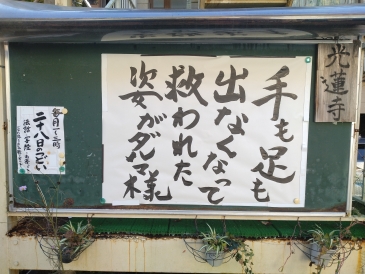 光蓮寺
手も足も
出なくなって
救われた
姿がダルマ様
毎月ひる二時
二十八日のつどい